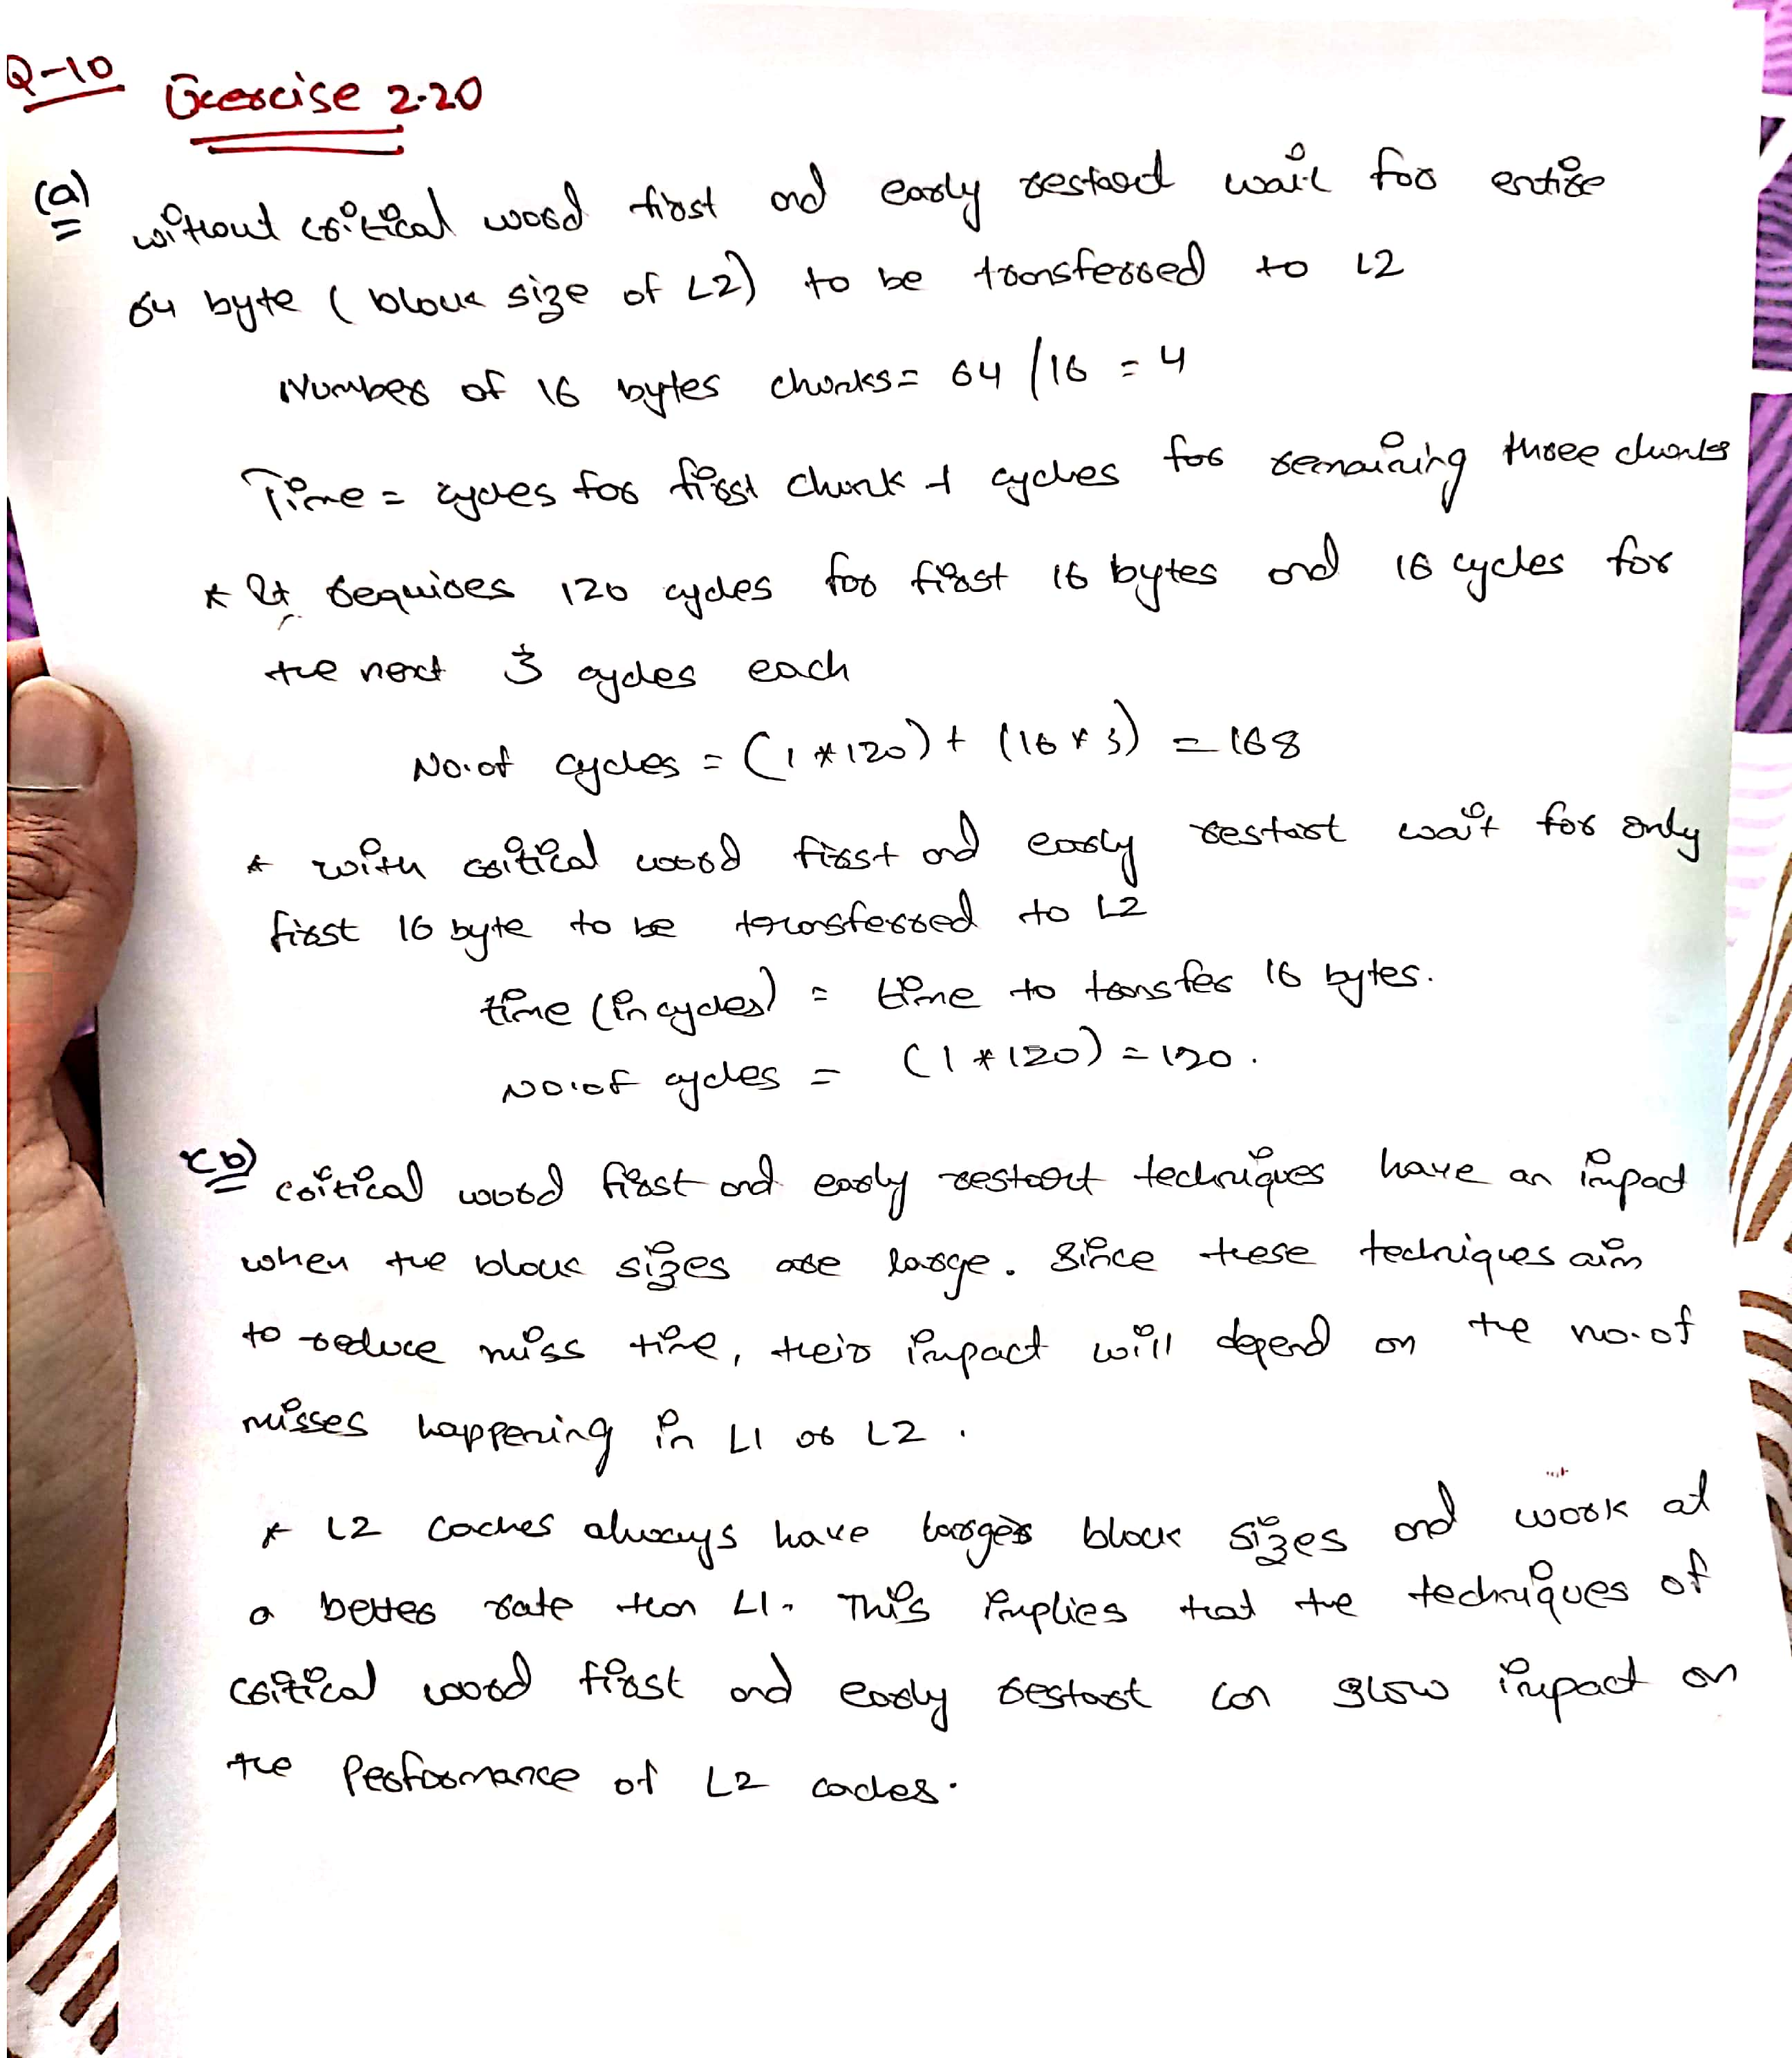 Q-10
Exercise 2.20
(a)
without critical word first and early restart wait for entire
64 byte ( block size of L2) to be transferred to L2
Number of 16 bytes chunks = 64 / 16 = 4
Time = cycles for first chunk + cycles for remaining three chunks
* It requires 120 cycles for first 16 bytes and 16 cycles for
the next 3 cycles each
No.of cycles = (1 * 120) + (16 * 3) = 168
* with critical word first and early restart wait for only
first 16 byte to be transferred to L2
time (in cycles) = time to transfer 16 bytes.
No.of cycles = (1 * 120) = 120.
(b)
critical word first and early restart techniques have an impact
when the block sizes are large. Since these techniques aim
to reduce miss time, their impact will depend on the no.of
misses happening in L1 or L2.
* L2 caches always have larger block sizes and work at
a better rate than L1. This implies that the techniques of
critical word first and early restart can show impact on
the performance of L2 caches.